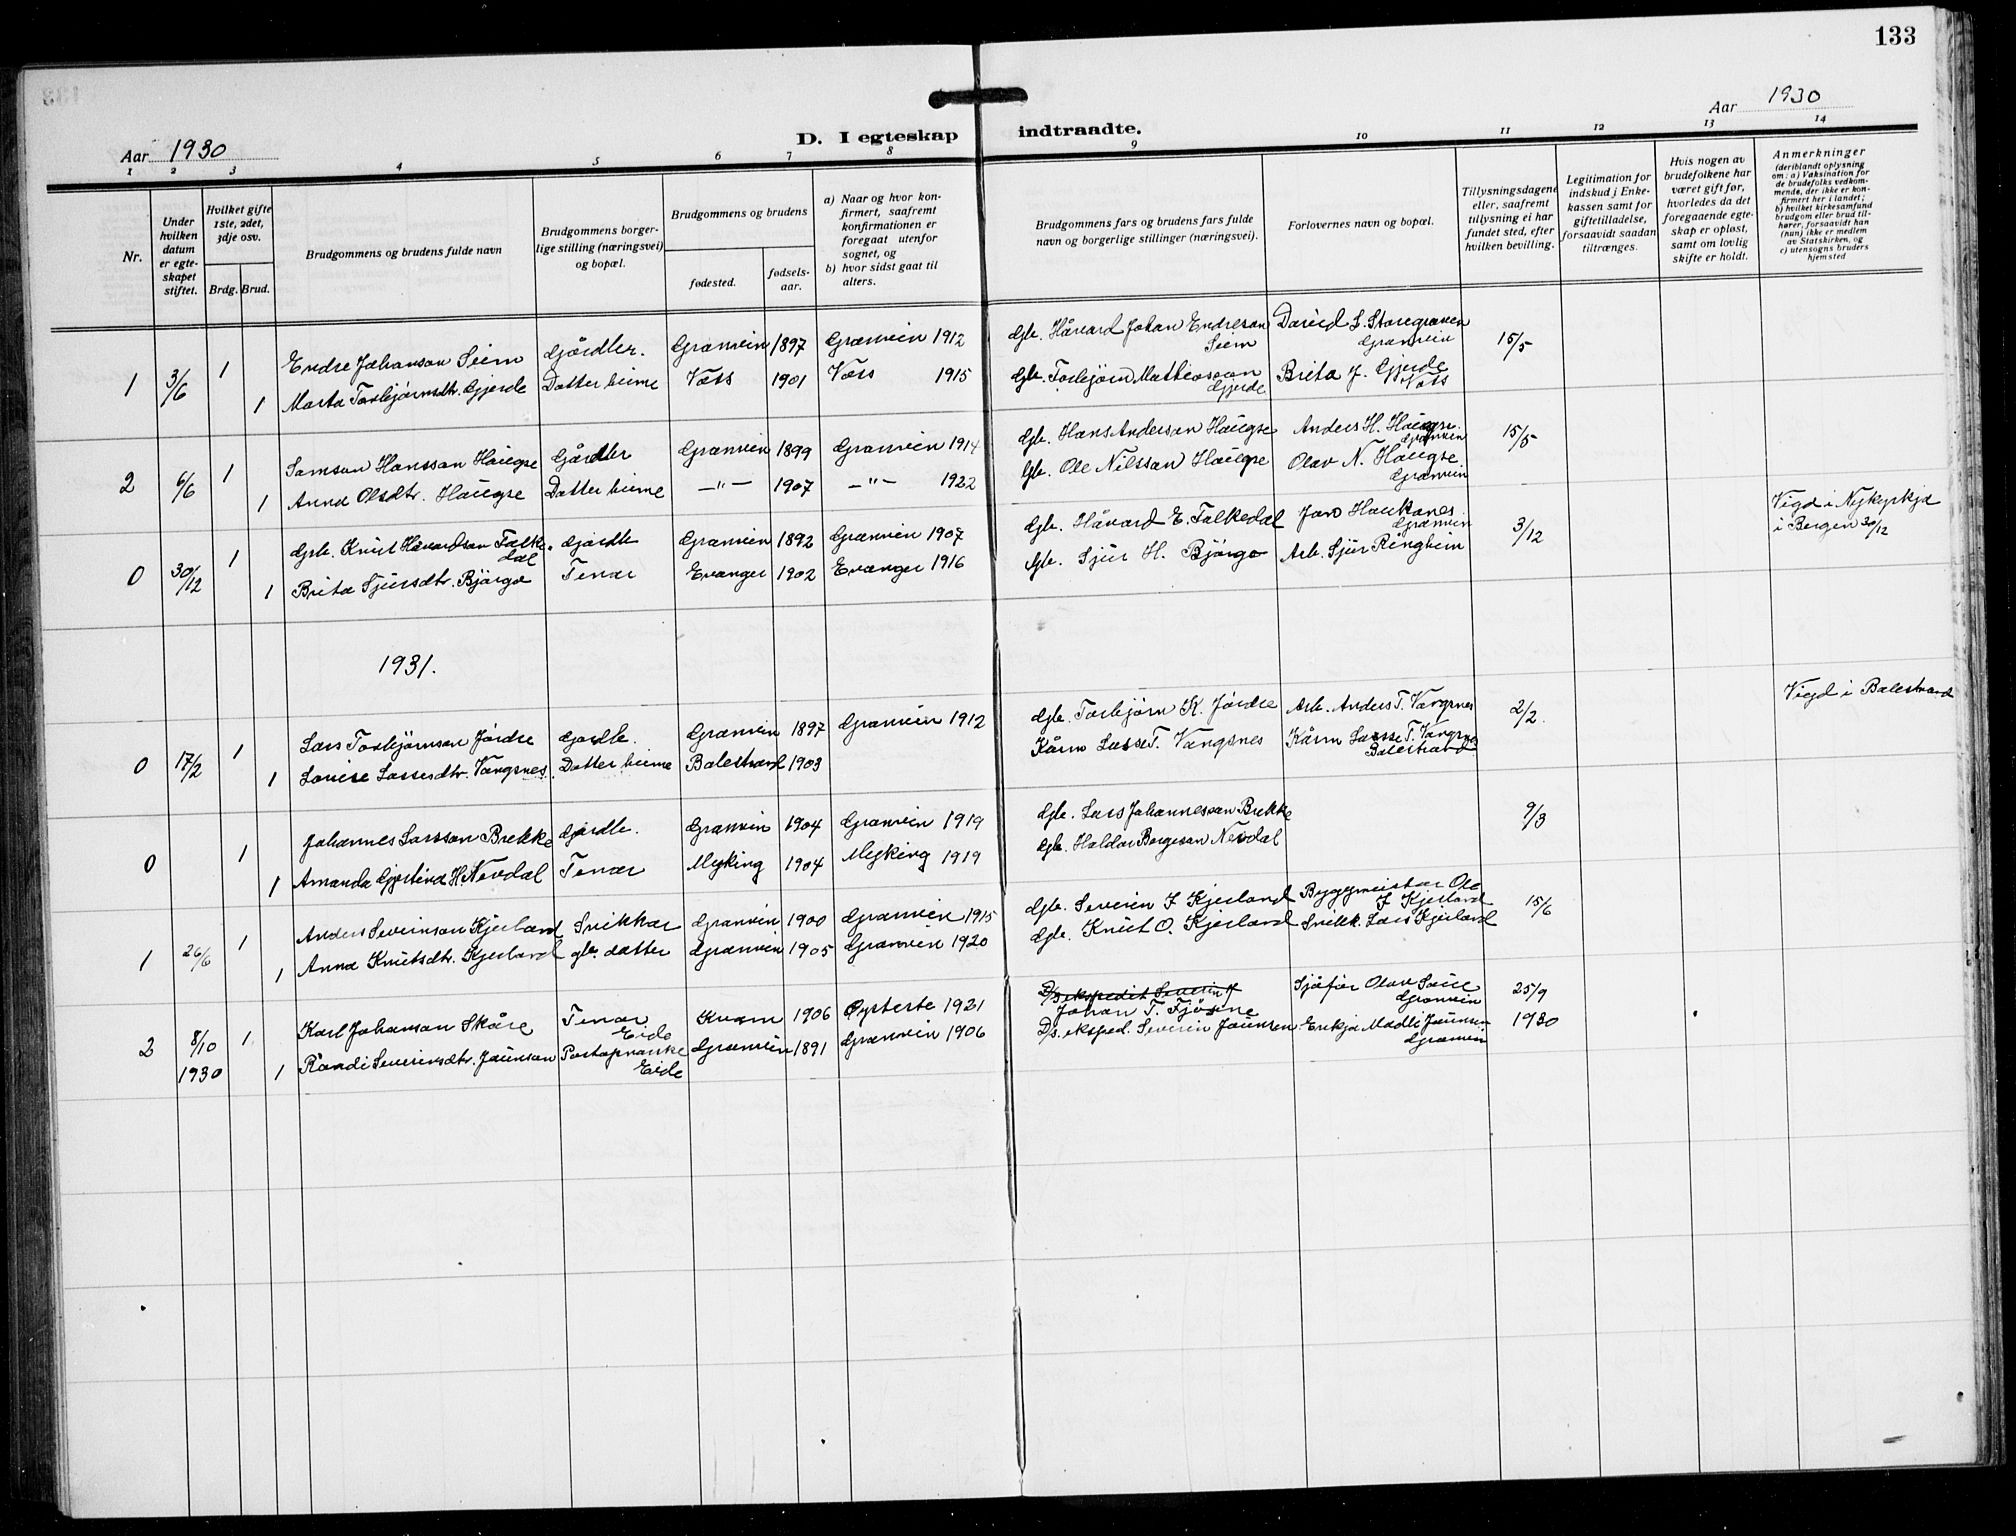 133
Aar 1930
D. I egteskap indtraadte.
Aar 1930
1 2 3 4 5 6 7 8 9 10 11 12 13 14
Nr.
Under hvilken datum er egteskapet stiftet.
Hvilket gifte 1ste, 2det, 3dje osv.
Brdg. Brud.
Brudgommens og brudens fulde navn
Brudgommens borgerlige stilling (næringsvei) og bopæl.
Brudgommens og brudens
fødested.
fødselsaar.
a) Naar og hvor konfirmert, saafremt konfirmationen er foregaat utenfor sognet, og
b) hvor sidst gaat til alters.
Brudgommens fars og brudens fars fulde navn og borgerlige stillinger (næringsvei).
Forlovernes navn og bopæl.
Tillysningsdagene eller, saafremt tillysning ei har fundet sted, efter hvilken bevilling.
Legitimation for indskud i Enkekassen samt for giftetilladelse, forsaavidt saadan tiltrænges.
Hvis nogen av brudefolkene har været gift før, hvorledes da det foregaaende egteskap er opløst, samt om lovlig skifte er holdt.
Anmerkninger
(deriblandt oplysning om: a) Vaksination for de brudefolks vedkommende, der ikke er konfirmert her i landet; b) hvilket kirkesamfund brudgom eller brud tilhører, forsaavidt han (hun) ikke er medlem av Statskirken, og c) utensogns bruders hjemsted
1 3/6 1 Endre Johanson Seim Gårdbr. Granvin 1897 Granvin 1912 Gb. Håvard Johan Endreson Seim David L. Storegraven Granvin 15/5
1 Marta Torbjørnsdtr. Gjerde Datter heime Voss 1901 Voss 1915 Gb. Torbjørn Matheosson Gjerde Brita J. Gjerde Voss
2 6/6 1 Samson Hansson Haugse Gårdbr Granvin 1899 Granvin 1914 Gb. Hans Anderson Haugse Anders H. Haugse. Granvin 15/5
1 Anna Olsdtr. Haugse Datter heime —"— 1907 —"— 1922 Gb. Ole Nilsson Haugse Olav N. Haugse Granvin
0 30/12 1 Gbr. Knut Håvardson Falkedal Gardb Granvin 1892 Granvin 1907 Gb. Håvard E. Falkedal Jon Haukanes Granvin 3/12 Vigd i Nykyrkja i Bergen 30/12
1 Brita Sjursdtr. Bjørgo Tenar Evanger 1902 Evanger 1916 Gb. Sjur H. Bjørgo Arb. Sjur Ringheim
1931.
0 17/2 1 Lars Torbjørnson Jordre Gardb. Granvin 1897 Granvin 1912 Gb. Torbjørn K. Jordre Arb. Anders T. Vangsnes 2/2. Vigd i Balestrand
1 Louise Lassesdtr. Vangsnes. Datter heime Balestrand 1903 Kårm Lasse T. Vangsnes Kårm Lasse T. Vangsnes Balestrand
0 1 Johannes Larsson Brekke Gardb. Granvin 1904 Granvin 1919 Gb. Lars Johannesson Brekke 9/3
1 Amanda Gjertina H. Nevdal Tenar Myking 1904 Myking 1919 Gb. Haldor Borgeson Nevdal
1 26/6 1 Anders Severinson Kjerland Snikkar Granvin 1900 Granvin 1915 Gb. Severin J Kjerland Byggmeistar Ole J Kjerland 15/6
1 Anna Knutsdtr. Kjerland gb. datter Granvin 1905 Granvin 1920 Gb. Knut O. Kjerland Snikk. Lars Kjerland
2 8/10 1930 1 Karl Johanson Skåre Tenar Eide Kvam 1906 Øystese 1921 D/s ekspedit Severin J Johan T. Fjøsne Sjåfør Olav Saue Granvin 25/9 1930
1 Randi Severinsdtr. Jaunsen Postopnarske Eide Granvin 1891 Granvin 1906 D/s. eksped. Severin Jaunsen Enkja Madli Jaunsen Granvin